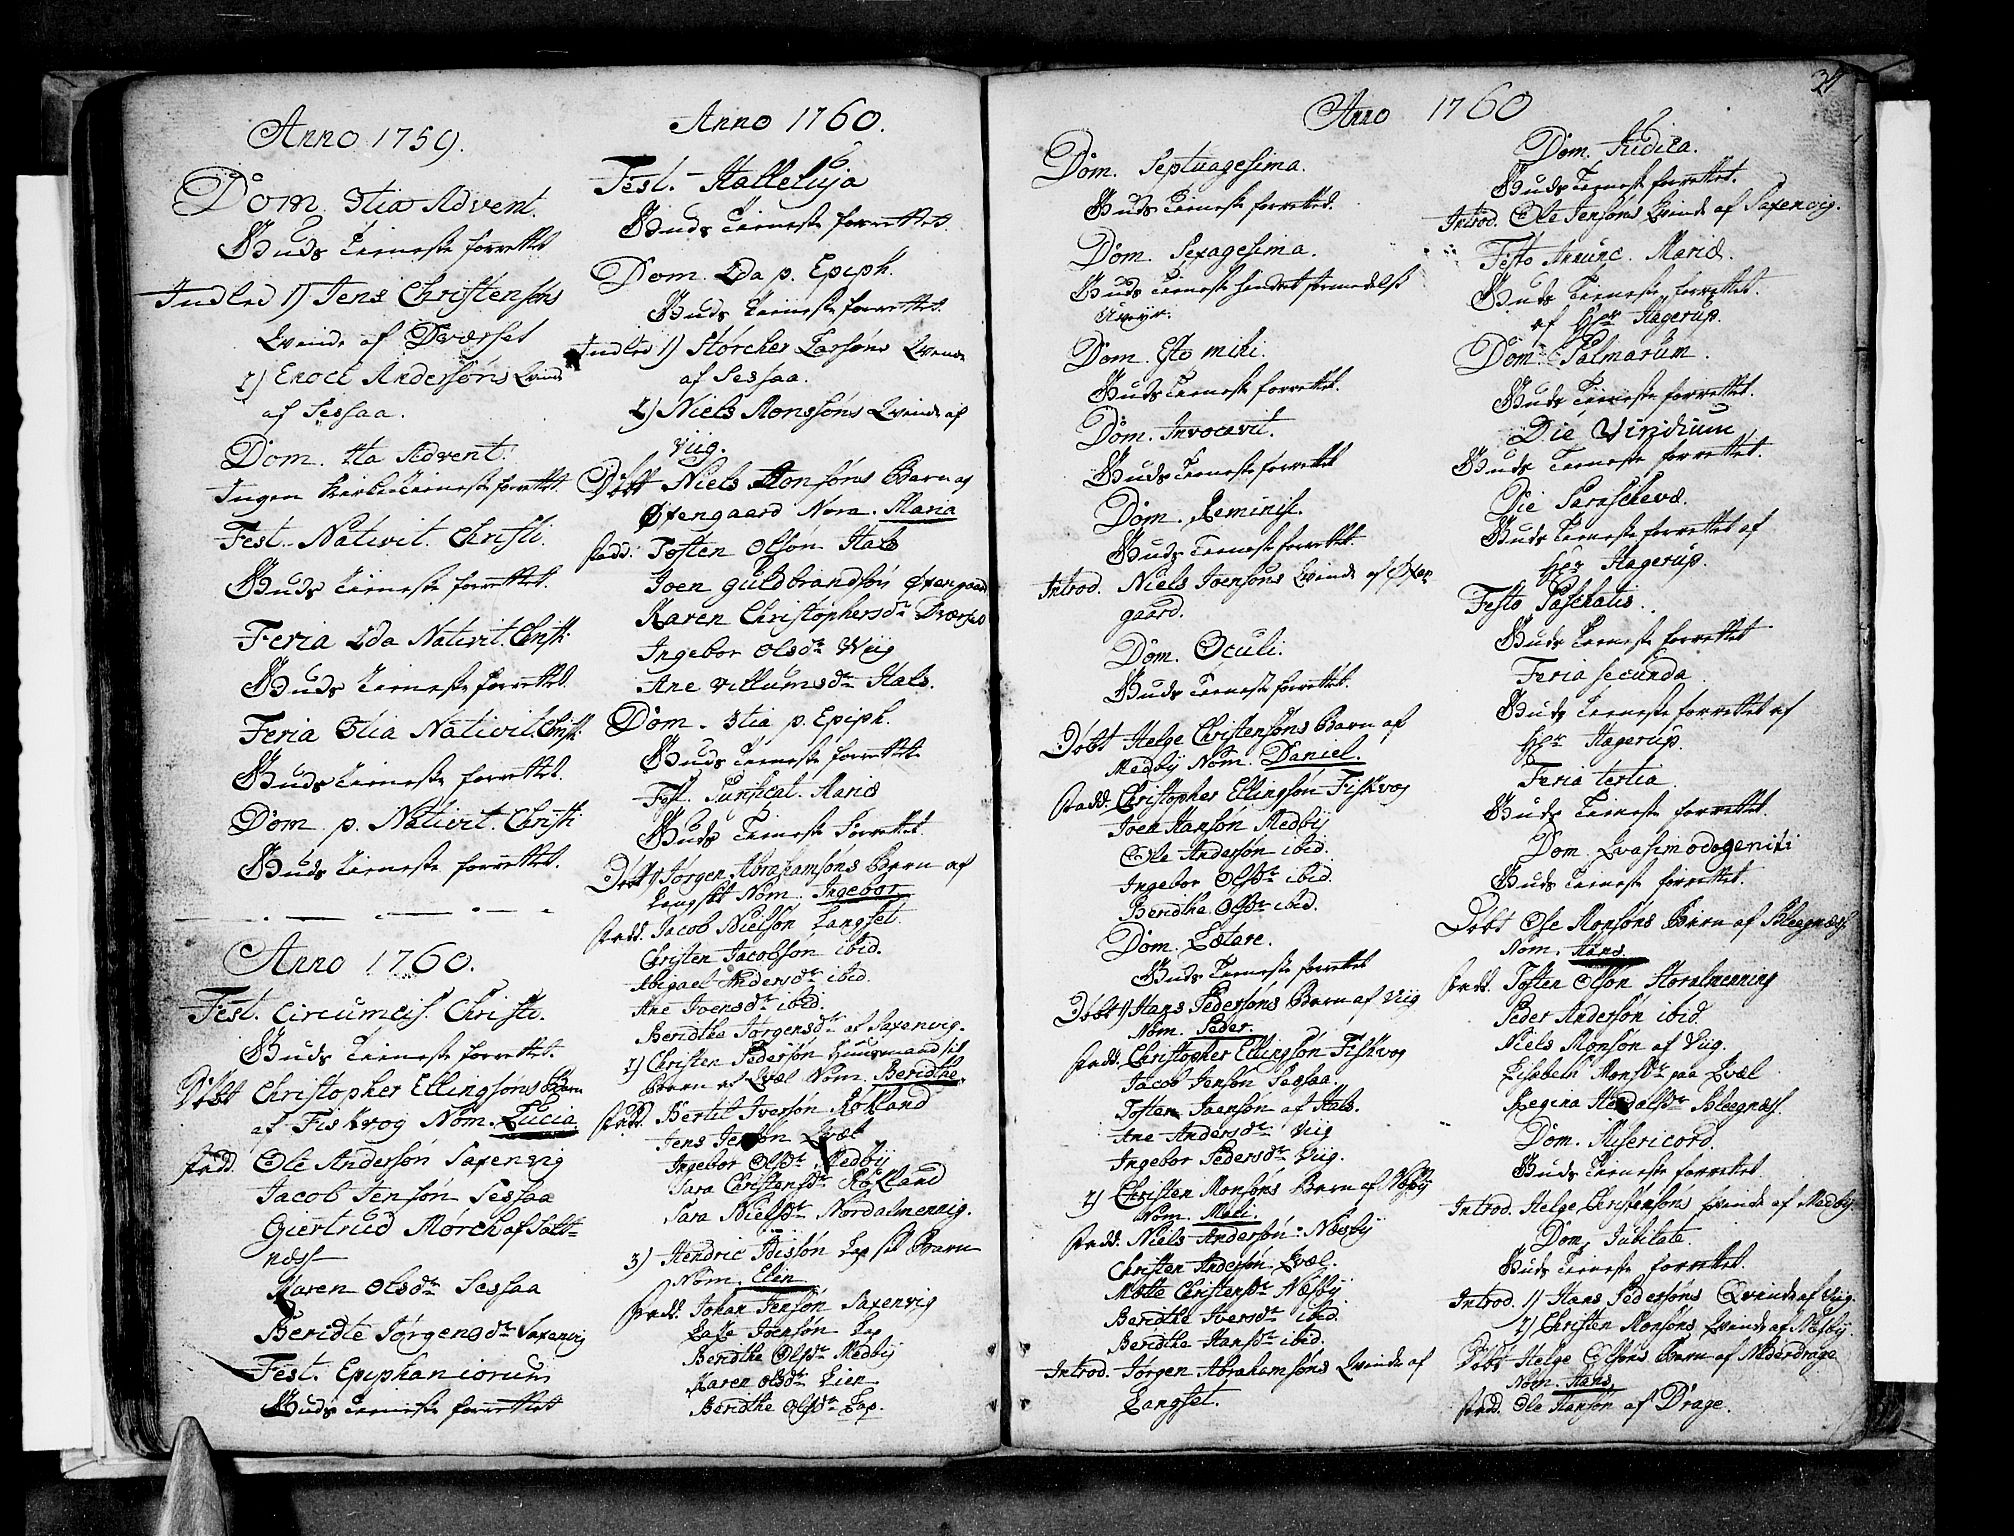 Anno 1759.
Dom. 3tia Advent.
Guds Tieneste forrettet
Indled 1) Jens Christensøns
Qvinde af Dværset
2) Enoct Andersøns Qvinde
af Sessaa.
Dom. 4ta Advent.
Ingen Kirketieneste forrettet.
Fest. Nativit. Christi.
Guds Tieneste forrettet.
Feria 2da Nativit. Christi.
Guds Tieneste forrettet.
Feria 3tia Nativit. Christi.
Guds Tieneste forrettet.
Dom p. Nativit. Christi
Guds Tieneste forrettet.
Anno 1760.
Fest. Circumcis. Christi.
Guds Tieneste forrettet.
Døbt Christopher Ellingsøns Barn
af Fiskvog Nom. Lucia.
Fadd. Ole Andersøn Saxenvig
Jacob Jensøn Sessaa
Giertrud Mørch af Salt-
næss
Karen Olsdr Sessaa
Beridte Jørgensdr Saxenvig
Fest. Epiphaniorum
Guds Tieneste forrettet
Anno 1760.
Fest. Halleluja
Guds Tieneste forrettet.
Dom. 2da p. Epiph.
Guds Tieneste forrettet.
Indled 1) Størcher Larsøns Qvinde
af Sessaa.
2) Niels Monssøns Qvinde af
Viig.
Døbt Niels Jonsøns Barn af
Øxengaard Nom. Maria
Fadd. Tosten Olson Hals
Joen Guldbrandsøn Øxengaard
Karen Christophersdr Dværset
Ingebor Olsdr Wiig
Ane Villumsdr Hals.
Dom. 3tia p. Epiph.
Guds Tieneste forrettet
Fest. Purificat. Mariæ
Guds Tieneste forrettet.
Døbt 1) Jørgen Abrahamsøns Barn af
Langset Nom. Ingebor
Fadd. Jacob Nielsøn Langset
Christen Jacobsøn ibid.
Abigael Andersdr ibid.
Ane Joensdr ibid.
Beridthe Jørgensdr af Saxenvig.
2) Christen Pedersøn Huusmand sit
Barn af Qvæl Nom. Beridthe
Fadd. Bertil Iversøn Røkland
Jens Jensøn Qvæl
Ingebor Olsdr Medbÿ
Sara Christensdr Røkland
Sara Nielsdr Nordalmennig.
3) Hendric Lap sit Barn
Nom. Elen
Fadd. Johan Jensøn Saxenvig
Lasse Joensøn Lap
Beridthe Olsdr Medbÿ
Karen Olsdr Lien
Beridthe Olsdr Lap.
34
Anno 1760
Dom. Septuagesima.
Guds Tieneste forrettet.
Dom. Sexagesima.
Guds Tieneste hindret formedelst
Uveyr.
Dom. Esto mihi.
Guds Tieneste forrettet.
Dom. Invocavit.
Guds Tieneste forrettet
Dom. Reminisc.
Guds Tieneste forrettet.
Introd. Niels Joensøns Qvinde af Øxen
gaard.
Dom. Oculi.
Guds Tieneste forrettet.
Døbt Helge Christensøns Barn af
Medbÿ Nom. Daniel.
Fadd. Christopher Ellingsøn Fiskvog
Joen Hansøn Medbÿ
Ole Andersøn ibid.
Ingebor Olsdr ibid.
Beridthe Olsdr ibid.
Dom. Lætare.
Guds Tieneste forrettet
Døbt 1) Hans Pedersøns Barn af Viig
Nom. Peder.
Fadd. Christopher Ellingsøn Fiskvog
Jacob Jensøn Sessaa.
Tosten Joensøn af Hals.
Ane Andersdr Viig
Ingebor Pedersdr Viig.
2) Christen Monsøns Barn af Næsbÿ
Nom. Mali.
Fadd. Niels Andersøn Næsbÿ
Christen Andersøn Qvæl.
Matte Christensdr Næsbÿ
Beridthe Iversdr ibid.
Beridthe Hansdr ibid.
Introd. Jørgen Abrahamsøns Qvinde af
Langset.
Dom. Judica.
Guds Tieneste forrettet.
Introd. Ole Jensøns Qvinde af Saxenvig.
Festo Annunc. Mariæ.
Guds Tieneste forrettet.
af Hr. Hagerup.
Dom. Palmarum.
Guds Tieneste forrettet.
Die Viridium
Guds Tieneste forrettet.
Die Parascheve.
Guds Tieneste forrettet af
Hr. Hagerup.
Festo Paschatis.
Guds Tieneste forrettet
Feria secunda
Guds Tieneste forrettet af
Hr. Hagerup.
Feria tertia
Guds Tieneste forrettet.
Dom. Qvasimodogeniti
Guds Tieneste forrettet.
Døbt Ole Monsøns Barn af Bleegnæs.
Nom. Hans.
Fadd. Tosten Olson Storalmenning
Peder Andersøn ibid
Niels Monsøn af Viig.
Elsebeth Monsdr paa Qvæl
Regina Bleegnæs.
Dom. Misericord.
Guds Tieneste forrettet
Introd. Helge Christensøns Qvinde af Medbÿ
Dom. Jubilate.
Guds Tieneste forrettet.
Introd. 1) Hans Pedersøns Qvinde af Viig.
2) Christen Monsøns Qvinde af Næsbÿ.
Døbt Helge Olsøns Barn af Nederdrage
Nom. Hans
Fadd. Ole Hansøn af Drage.